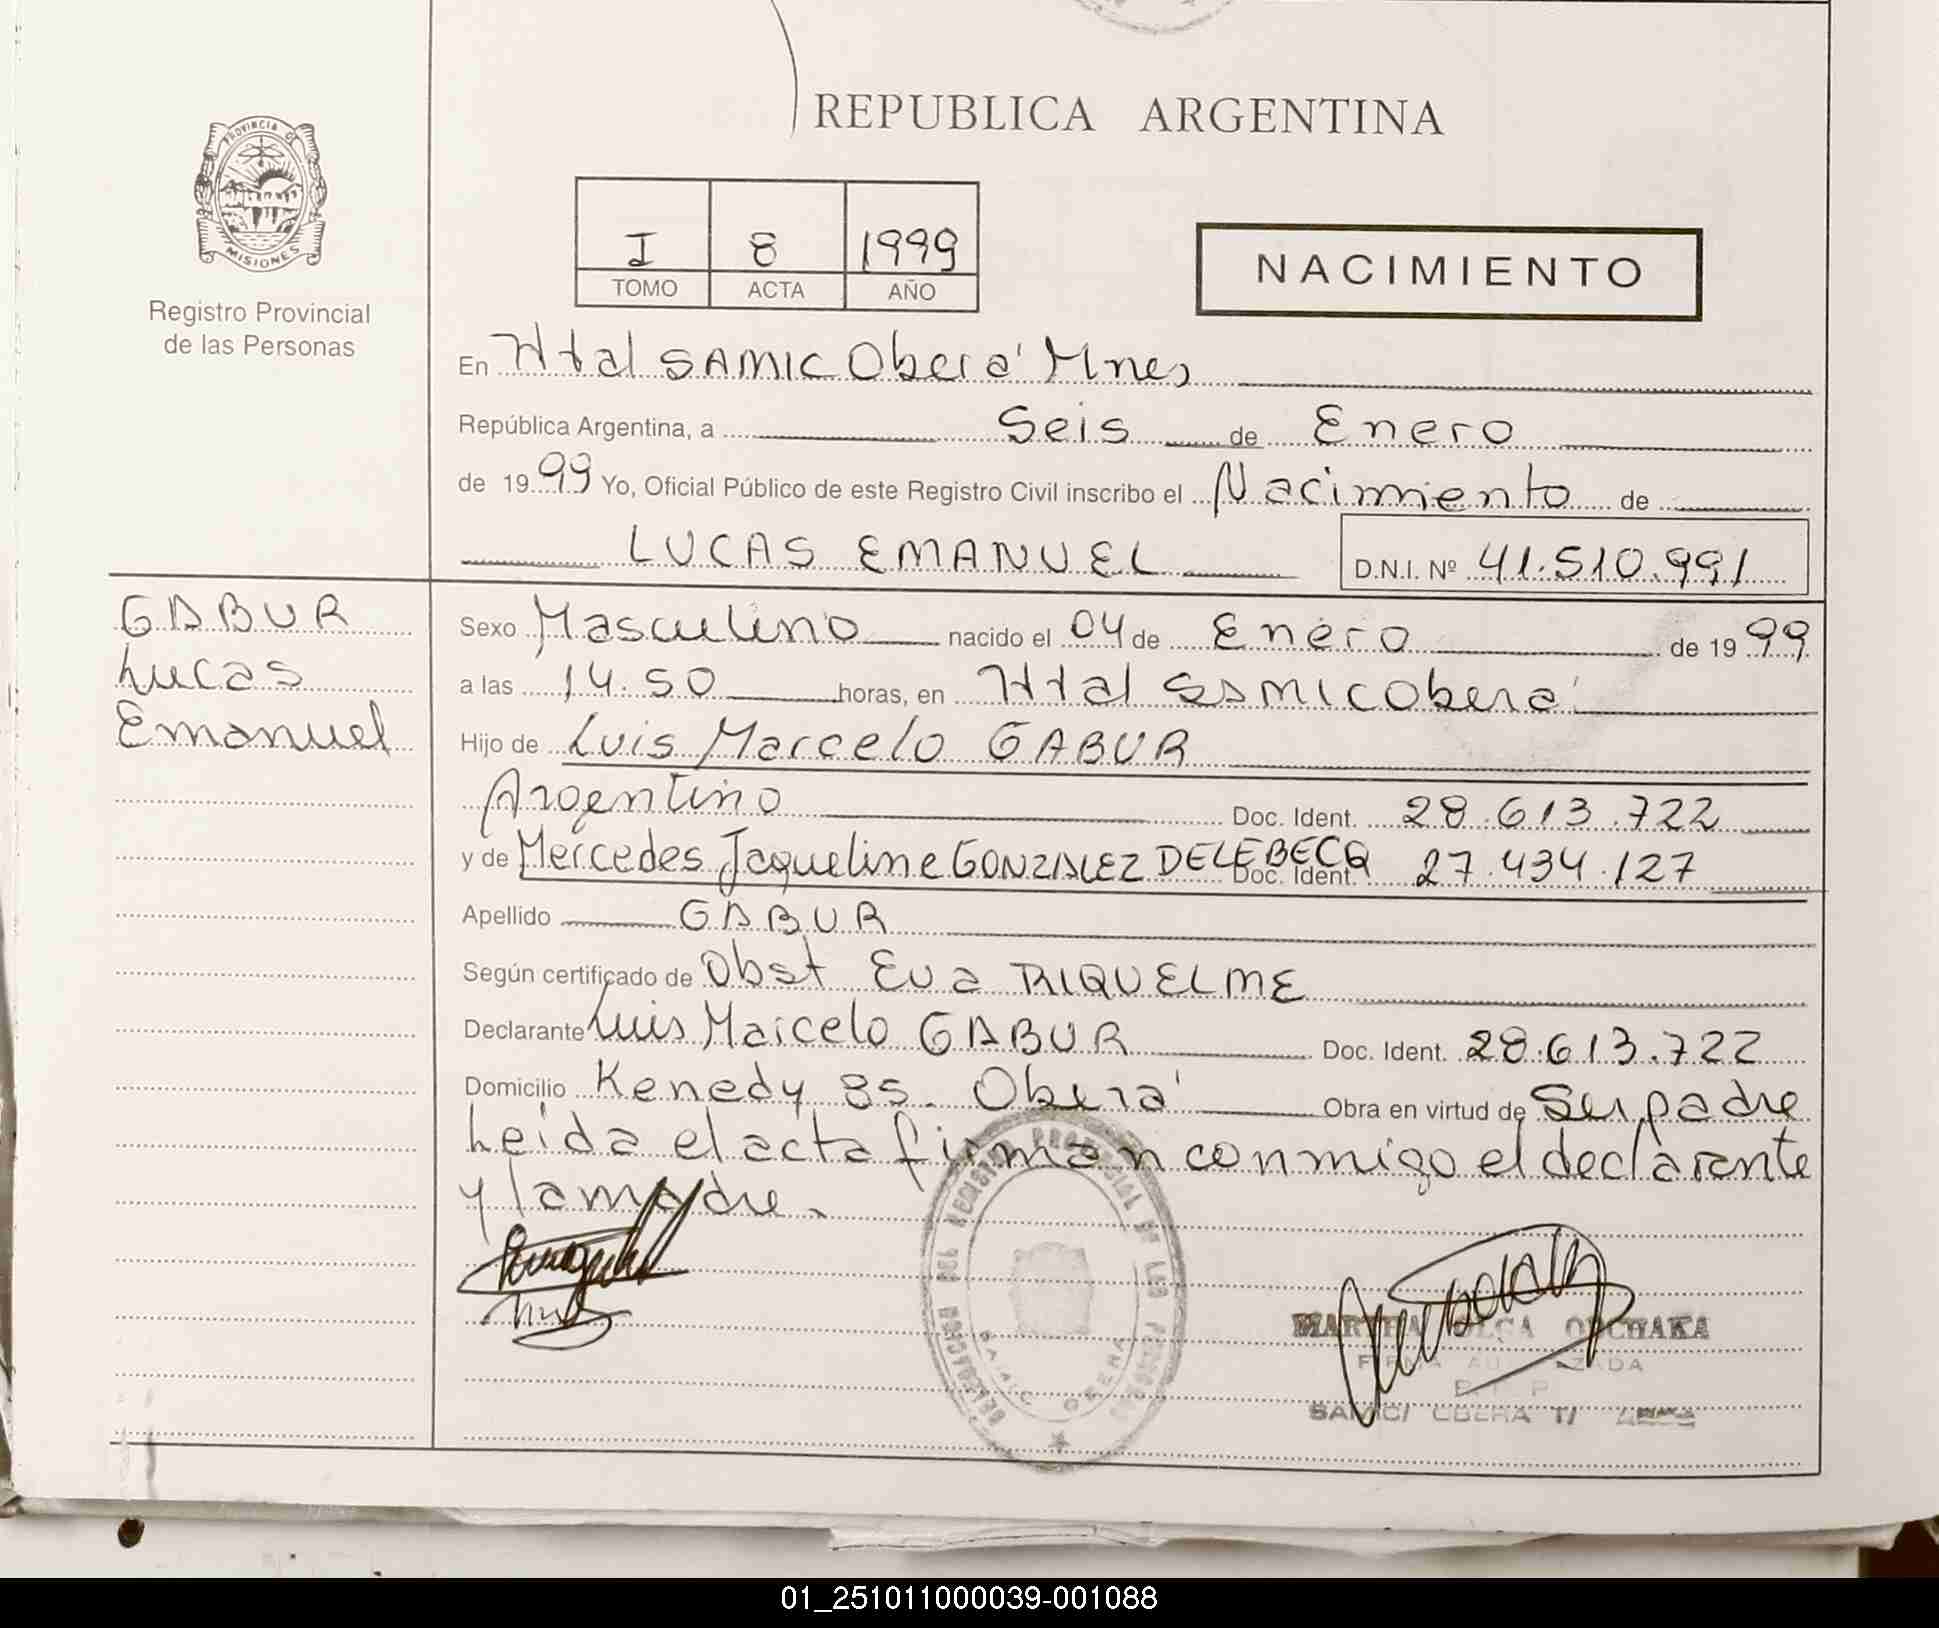 REPUBLICA ARGENTINA
PROVINCIA DE
MISIONES
Registro Provincial
de las Personas
I 8 1999
TOMO ACTA AÑO
NACIMIENTO
En Htal SAMIC Oberá Mnes
República Argentina, a Seis de Enero
de 1999 Yo, Oficial Público de este Registro Civil inscribo el Nacimiento de
LUCAS EMANUEL D.N.I. Nº 41.510.991
GABUR
Lucas
Emanuel
Sexo Masculino nacido el 04 de Enero de 1999
a las 14.50 horas, en Htal SAMIC Oberá
Hijo de Luis Marcelo GABUR
Argentino Doc. Ident. 28.613.722
y de Mercedes Jaqueline GONZALEZ DELEBECQ Doc. Ident. 27.434.127
Apellido GABUR
Según certificado de Obst Eva RIQUELME
Declarante Luis Marcelo GABUR Doc. Ident. 28.613.722
Domicilio Kenedy 85. Oberá Obra en virtud de Ser padre
Leida el acta firman conmigo el declarante
y la madre.
DELEGACION DEL REGISTRO PROVINCIAL DE LAS PERSONAS
OBERA
MARTHA OLGA
FIRMA AUTORIZADA
SAMIC/ OBERA
01_251011000039-001088